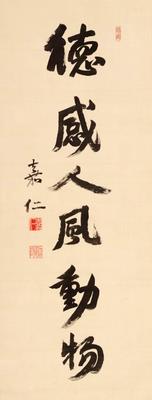 徳感人風動物
嘉仁